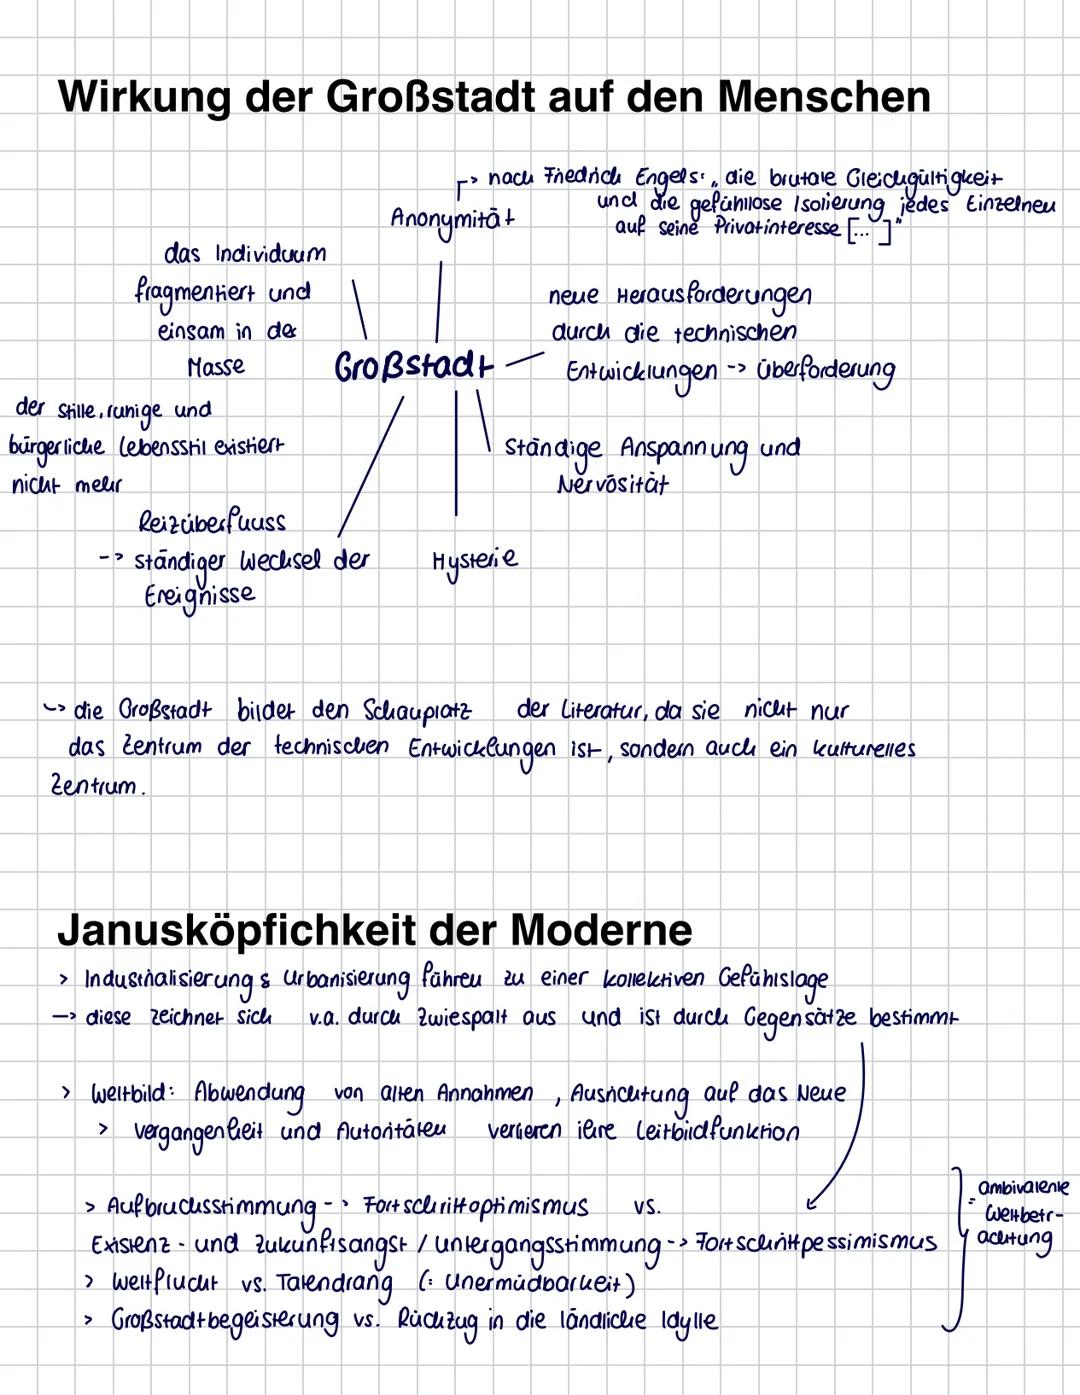 Wirkung der Großstadt auf den Menschen
-> nach Friedrich Engels: „die brutale Gleichgültigkeit
und die gefühllose Isolierung jedes Einzelnen
auf seine Privatinteresse [...]"
Anonymität
das Individuum
fragmentiert und
einsam in der
Masse
neue Herausforderungen
durch die technischen
Entwicklungen -> Überforderung
Großstadt
der stille, ruhige und
bürgerliche Lebensstil existiert
nicht mehr
Ständige Anspannung und
Nervosität
Reizüberfluss
-> ständiger Wechsel der
Ereignisse
Hysterie
-> die Großstadt bildet den Schauplatz der Literatur, da sie nicht nur
das Zentrum der technischen Entwicklungen ist, sondern auch ein kulturelles
Zentrum.
Janusköpfichkeit der Moderne
> Industrialisierung & Urbanisierung führen zu einer kollektiven Gefühlslage
-> diese zeichnet sich v.a. durch Zwiespalt aus und ist durch Gegensätze bestimmt
> Weltbild: Abwendung von alten Annahmen, Ausrichtung auf das Neue
> Vergangenheit und Autoritäten verlieren ihre Leitbildfunktion
> Aufbruchsstimmung -> Fortschrittoptimismus vs.
Existenz- und Zukunftsangst / Untergangsstimmung -> Fortschrittpessimismus
> Weltflucht vs. Tatendrang (: Unermüdbarkeit)
> Großstadtbegeisterung vs. Rückzug in die ländliche Idylle
= ambivalente
Weltbetr-
achtung